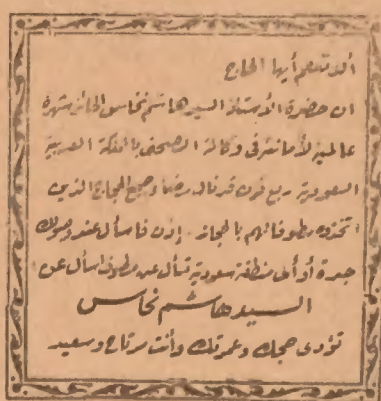 ألا تعلم أيها الحاج
ان حضرة الأستاذ السيد هاشم نحاس الحائز شهرة
عالمية لأمانته في وكالة الصحف بالمملكة العربية
السعودية ربع قرن قد نال رضا جميع الحجاج الذين
اتخذوه مطوفا لهم بالحجاز. إذن فاسأل عند وصولك
جدة أو أى منطقة سعودية تسأل عن مطوفك اسأل عن
السيد هاشم نحاس
تؤدى حجك وعمرتك وأنت مرتاح وسعيد